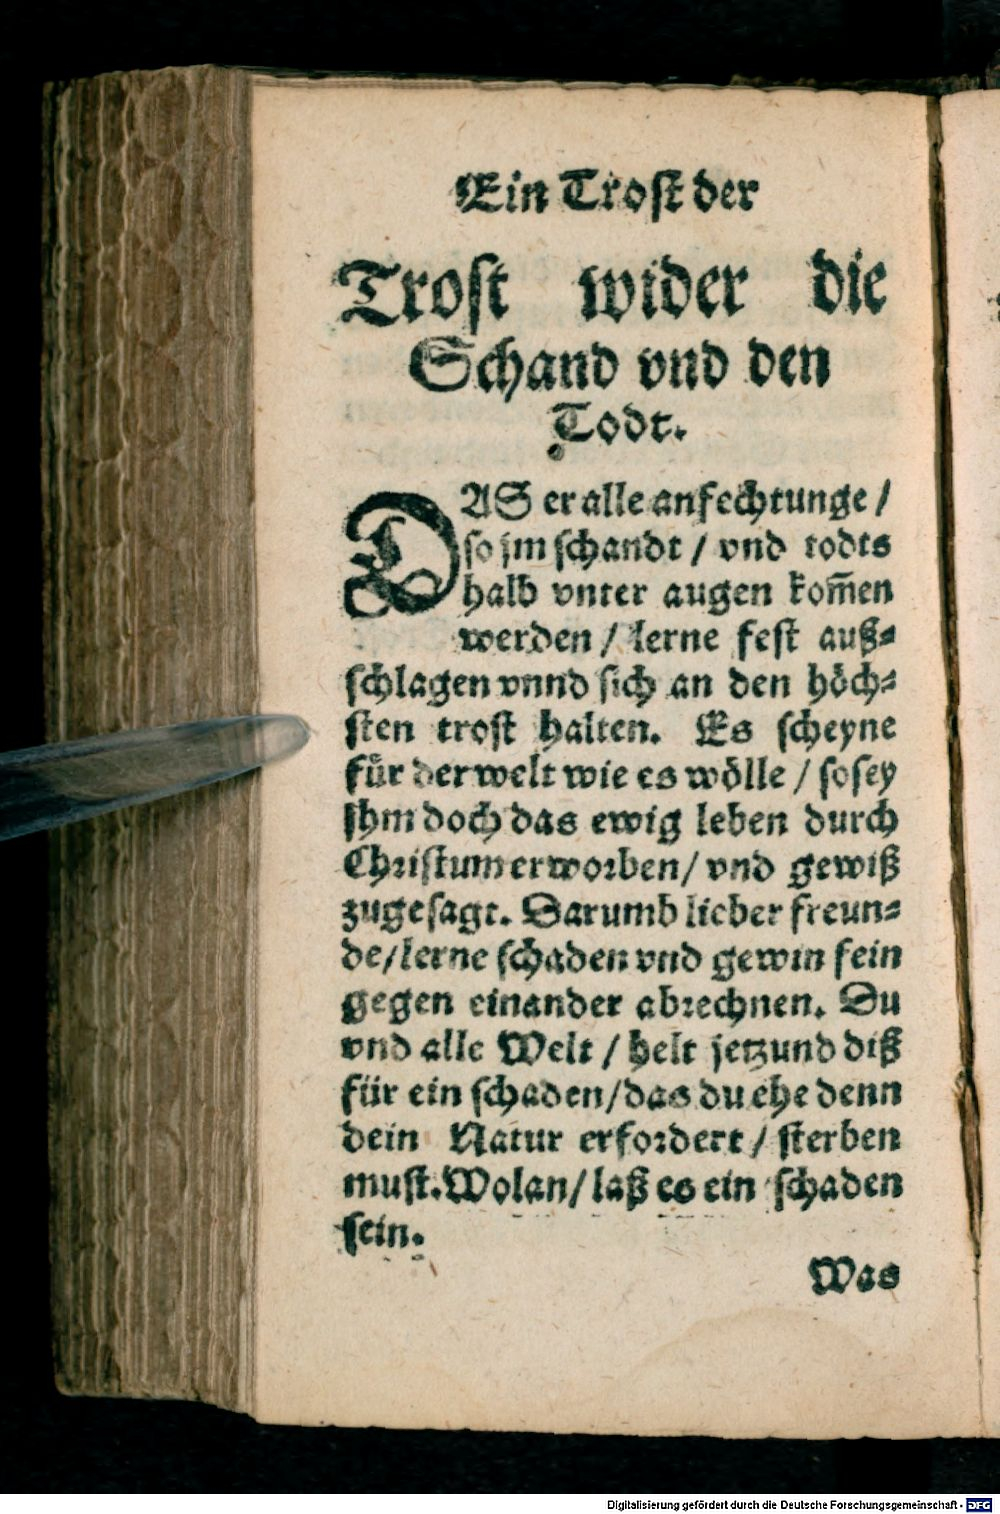 Ein Trost der
Trost wider die
Schand vnd den
Todt.
DAS er alle anfechtunge /
so jm schandt / vnd todts
halb vnter augen kom̃en
werden / lerne fest auß⸗
schlagen vnnd sich an den höch⸗
sten trost halten. Es scheyne
für der welt wie es wölle / so sey
jhm doch das ewig leben durch
Christum erworben / vnd gewiß
zugesagt. Darumb lieber freun⸗
de / lerne schaden vnd gewin fein
gegen einander abrechnen. Du
vnd alle Welt / helt jetzund diß
für ein schaden / das du ehe denn
dein Natur erfordert / sterben
must. Wolan / laß es ein schaden
sein.
Was
Digitalisierung gefördert durch die Deutsche Forschungsgemeinschaft - DFG